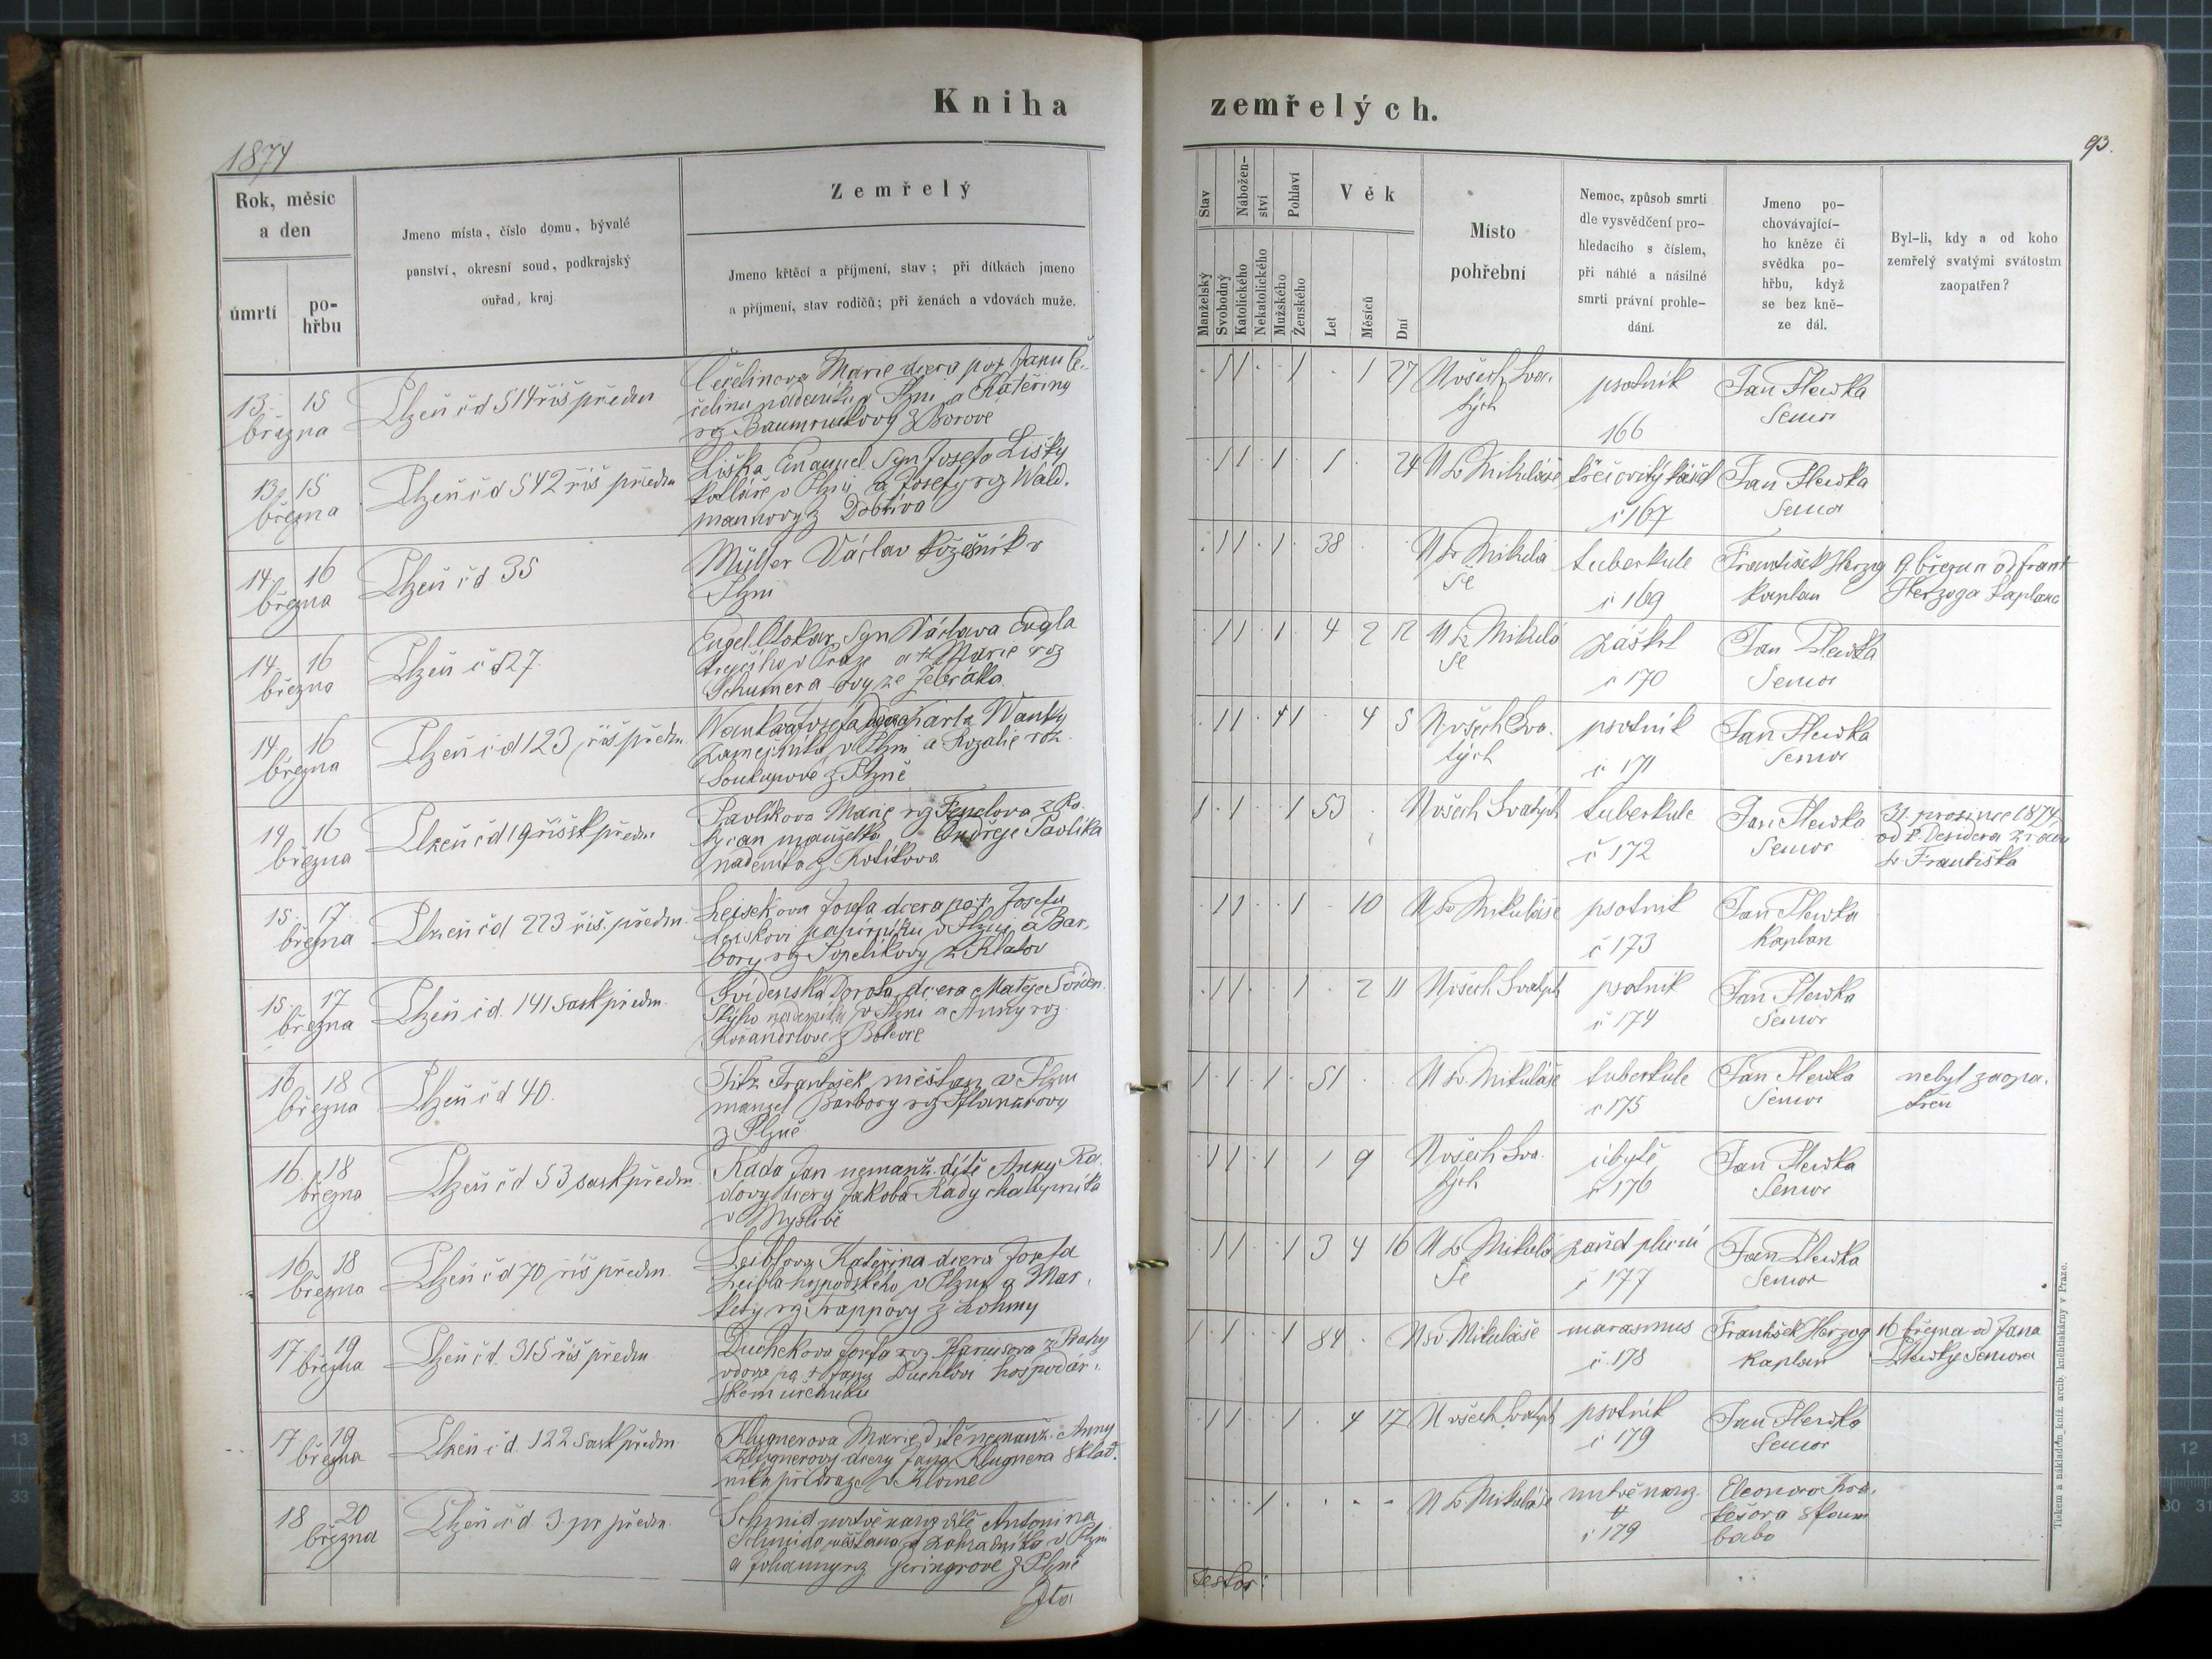 Kniha zemřelých.
1874
93.
Rok, měsíc
a den
úmrtí
po-
hřbu
Jmeno místa, číslo domu, bývalé
panství, okresní soud, podkrajský
ouřad, kraj.
Zemřelý
Jmeno křtěcí a příjmení, stav; při dítkách jmeno
a příjmení, stav rodičů; při ženách a vdovách muže.
Stav
Nábožen-
ství
Pohlaví
Věk
Manželský
Svobodný
Katolického
Nekatolického
Mužského
Ženského
Let
Měsíců
Dní
Místo
pohřební
Nemoc, způsob smrti
dle vysvědčení pro-
hledacího s číslem,
při náhlé a násilné
smrti právní prohle-
dání.
Jmeno po-
chovávající-
ho kněze či
svědka po-
hřbu, když
se bez kně-
ze dál.
Byl-li, kdy a od koho
zemřelý svatými svátostm
zaopatřen?
13. 15
března
Plzeň čd 514 řiš předm
Marie dcera poz. Janu Če-
čelinu nadeníku v Plzni a Kateřiny
z Borové
1 27
U všech Sva-
tých
psotník
166
Jan Plewka
Senior
13. 15
března
Plzeň čd 542 řiš předm
Liška Emanuel Syn Josefa Lišky
kotláře v Plzni a Josefy roz Wald-
mannovy z Dobříva
1 24
U sv Mikuláše
křečovitý kašel
č 167
Jan Plewka
Senior
14. 16
března
Plzeň čd. 35
Müller Václav kožešník v
Plzni
38
U sv Mikulá
še
tuberkule
č 169
František Herzog
kaplan
9. března od frant
Herzoga kaplana
14. 16
března
Plzeň čd 27.
Engel Otokar, Syn Václava Engla
krejčího v Praze a Marie roz
Schumera ovy ze Žebráka
4 2 12
U sv Mikulá
še
záškrt
č 170
Jan Plewka
Senior
14. 16
března
Plzeň čd 123 řiš předm
Josefa dcera Karla Waňky
zámečníka v Plzni a Rozalie roz.
Soukupové z Plzně
4 5
U všech Sva-
tých
psotník
č 171
Jan Plewka
Senior
14. 16
března
Plzeň čd 19 řišsk předm
Pavlikova Marie roz z Ro-
kycan manželka Ondřeje Pavlika
nadeníka z Kotíkova
53
U všech Svatých
tuberkule
č 172
Jan Plewka
Senior
31. prosince 1874
od P. Desidera z řadu
sv Františka
15. 17.
března
Plzeň čd 223 řiš. předm.
Josefa dcera poz. Josefu
papírníku v Plzni a Bar-
bory roz Popelíkovy z Klatov
10
U sv Mikuláše
psotník
č 173
Jan Plewka
Kaplan
15. 17
března
Plzeň čd. 141 Sask předm.
Svidenská Dorota, dcera Matěje Sviden-
ského nadeníka v Plzni a Anny roz.
z Bolevce
2 11
U všech Svatých
psotník
č 174
Jan Plewka
Senior
16. 18
března
Plzeň čd 40.
František, měšťan v Plzni
manžel Barbory roz
z Plzně
51
U sv Mikuláše
tuberkule
č 175
Jan Plewka
Senior
nebyl zaopa-
třen
16. 18
března
Plzeň čd 53 sask předm
Rada Jan nemanž. dítě Anny Ra-
dovy dcery Jakoba Rady chalupníka
v Myslivě
1 9
U všech Sva-
tých
úbytě
č 176
Jan Plewka
Senior
16. 18
března
Plzeň čd 70 řiš předm.
Leiblova Kateřina dcera Josefa
Leibla hospodského v Plzni a Mar-
kety roz Trappovy z Lohmy
3 4 16
U sv Mikulá
še
zánět plícní
č 177
Jan Plewka
Senior
17. 19
března
Plzeň čd. 315 řiš předm
Josefa roz Hanusova z Prahy
vdova po † Janu Duchkovi hospodář-
ském úředníku
84
U sv. Mikuláše
marasmus
č 178
František Herzog
Kaplan
16 března od Jana
Plewky Seniora
17 19
března
Plzeň čd. 122 Sask předm.
Klugnerova Marie dítě nemanž. Anny
Klugnerovy dcery Jana Klugnera sklad-
níka při dráze v
4 17
U všech Svatých
psotník
č 179
Jan Plewka
Senior
18 20
března
Plzeň čd. 3 pr předm.
Schmid mrtvě naroz dítě Antonína
Schmida měšťana a zahradníka v Plzni
a Johanny roz z Plzně
U sv Mikuláše
mrtvě naroz.
č 179
Eleonora
bába
Tiskem a nákladem kníž. arcib. knihtiskárny v Praze.